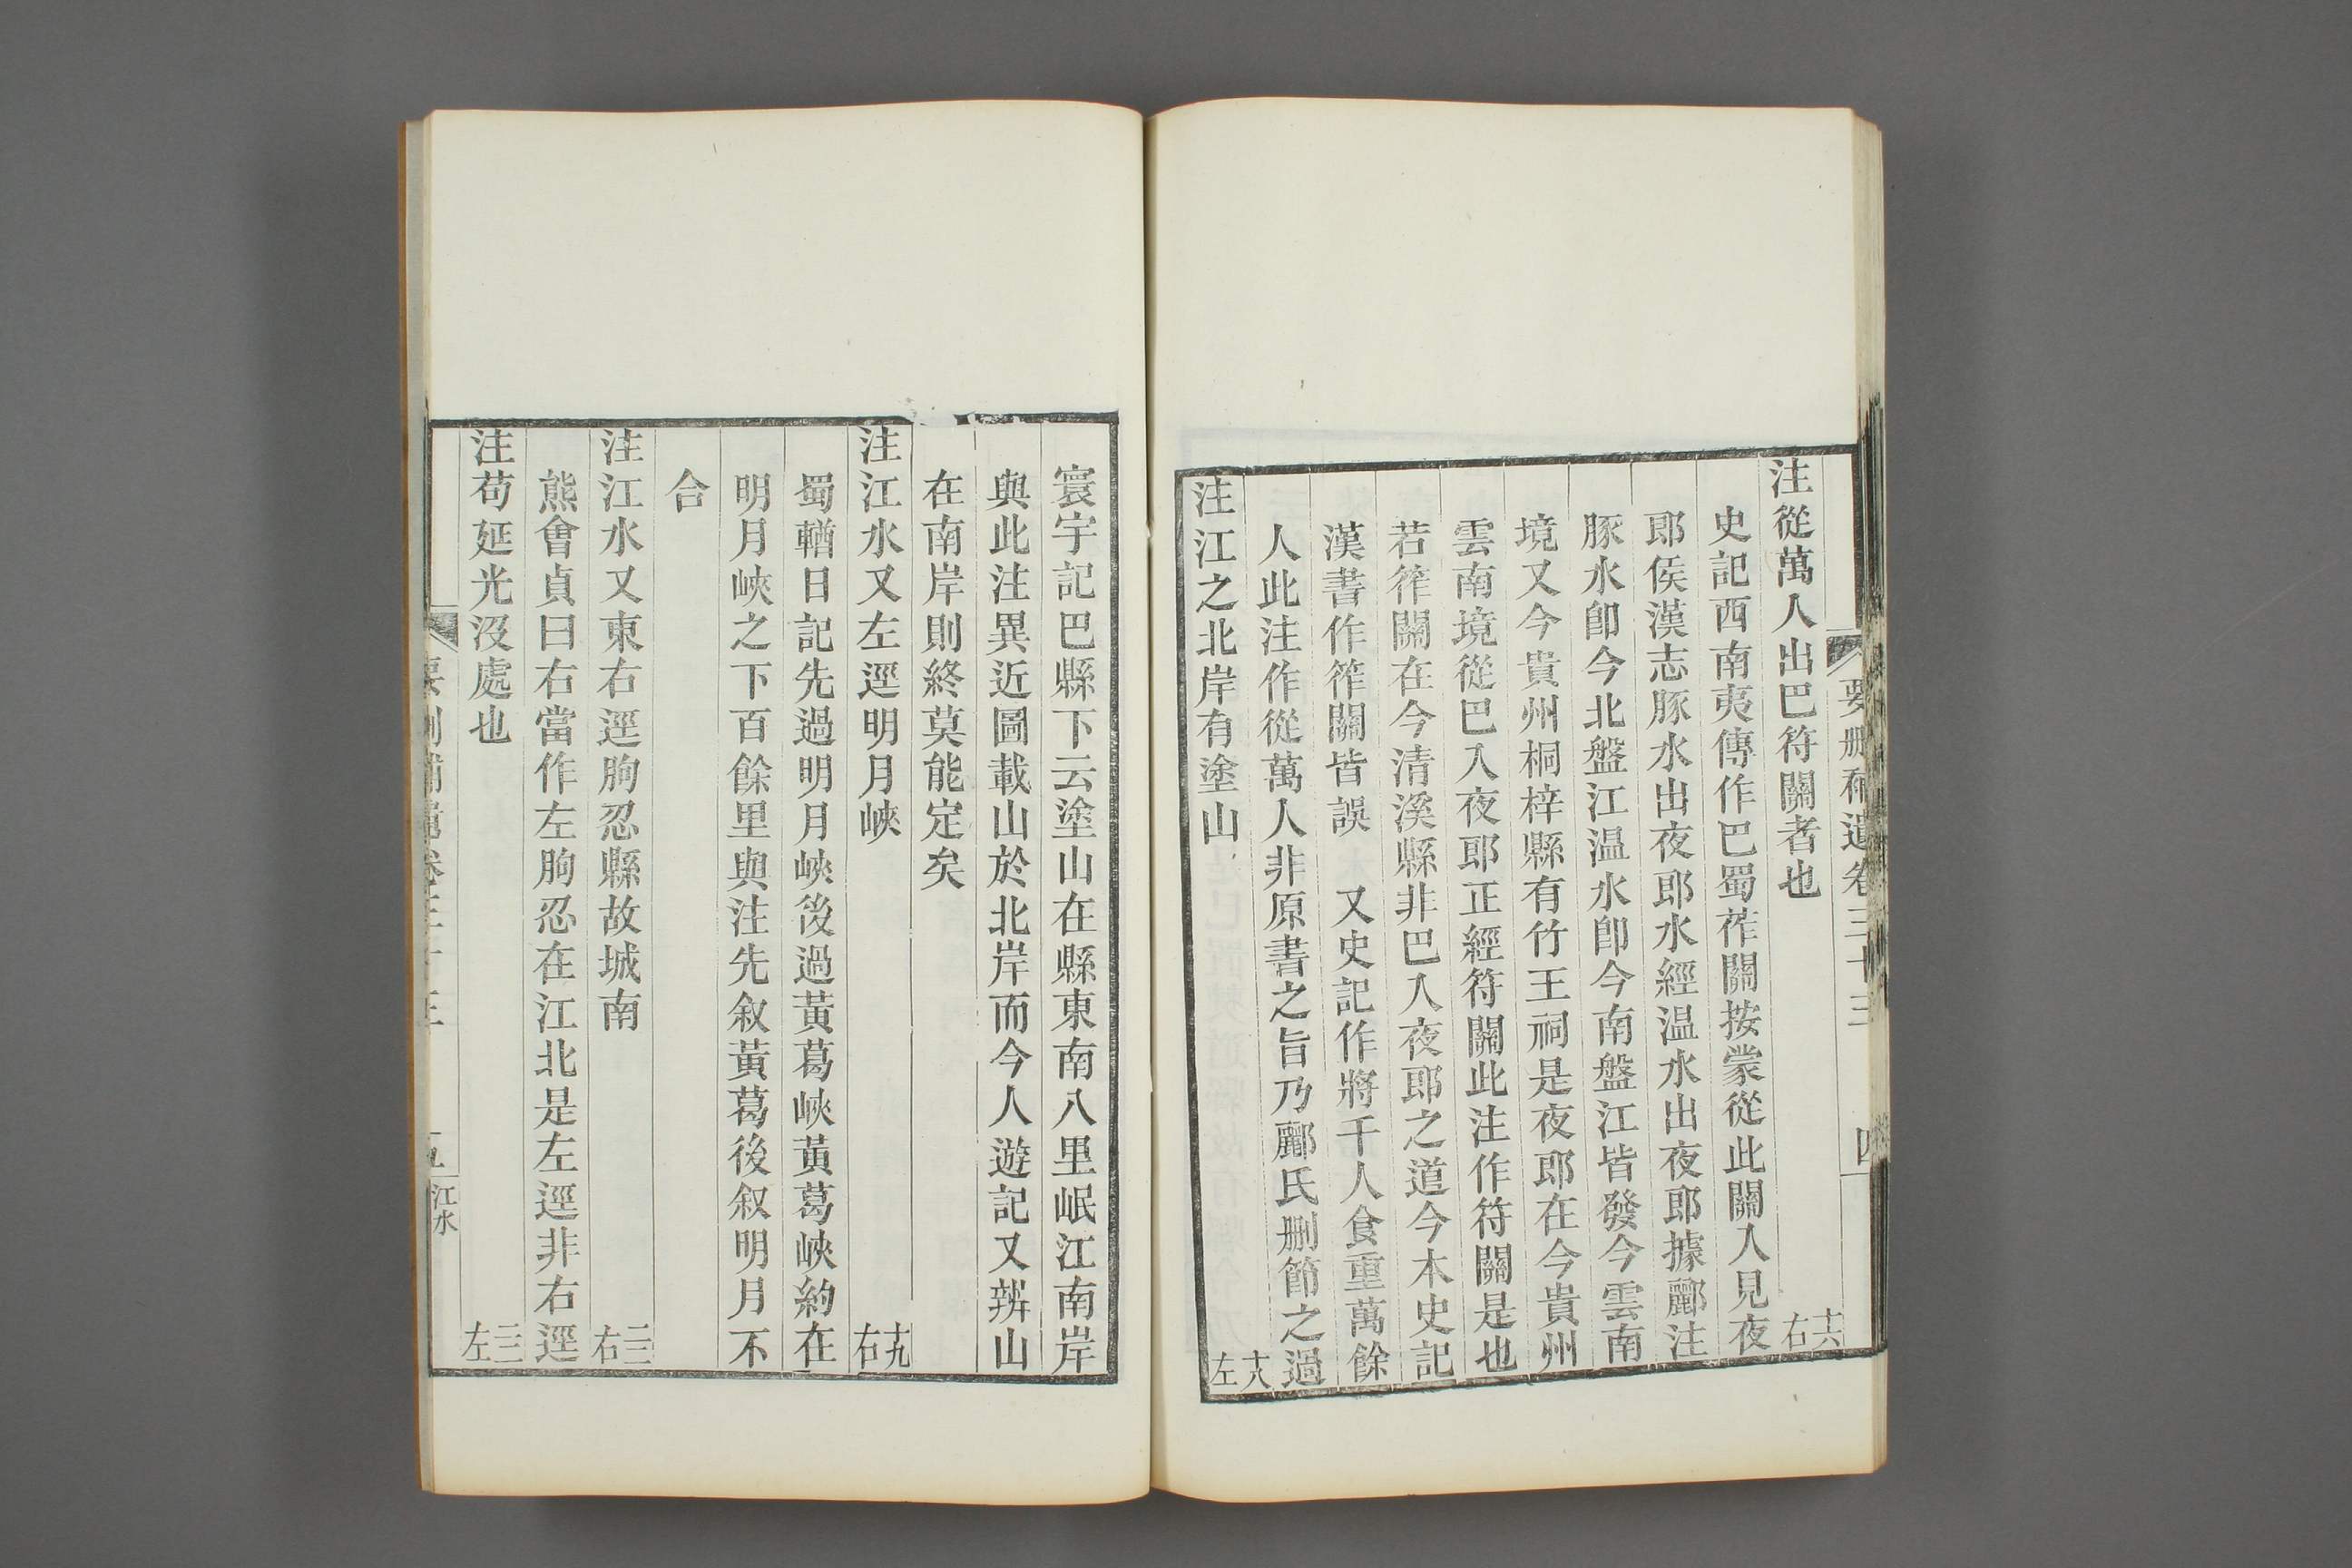 要刪補遺卷三十三 四
注從萬人出巴符關者也 十六右
史記西南夷傳作巴蜀莋關按蒙從此關入見夜
郎侯漢志豚水出夜郎水經温水出夜郎據酈注
豚水卽今北盤江温水卽今南盤江皆發今雲南
境又今貴州桐梓縣有竹王祠是夜郎在今貴州
雲南境從巴入夜郎正經符關此注作符關是也
若筰關在今清溪縣非巴入夜郎之道今本史記
漢書作筰關皆誤 又史記作將千人食重萬餘
人此注作從萬人非原書之旨乃酈氏刪節之過
注江之北岸有塗山 十八左
寰宇記巴縣下云塗山在縣東南八里岷江南岸
與此注異近圖載山於北岸而今人遊記又辨山
在南岸則終莫能定矣
注江水又左逕明月峽 十九右
蜀輶日記先過明月峽後過黃葛峽黃葛峽約在
明月峽之下百餘里與注先叙黃葛後叙明月不
合
注江水又東右逕朐忍縣故城南 二三右
熊會貞曰右當作左朐忍在江北是左逕非右逕
注苟延光沒處也 二三左
江水